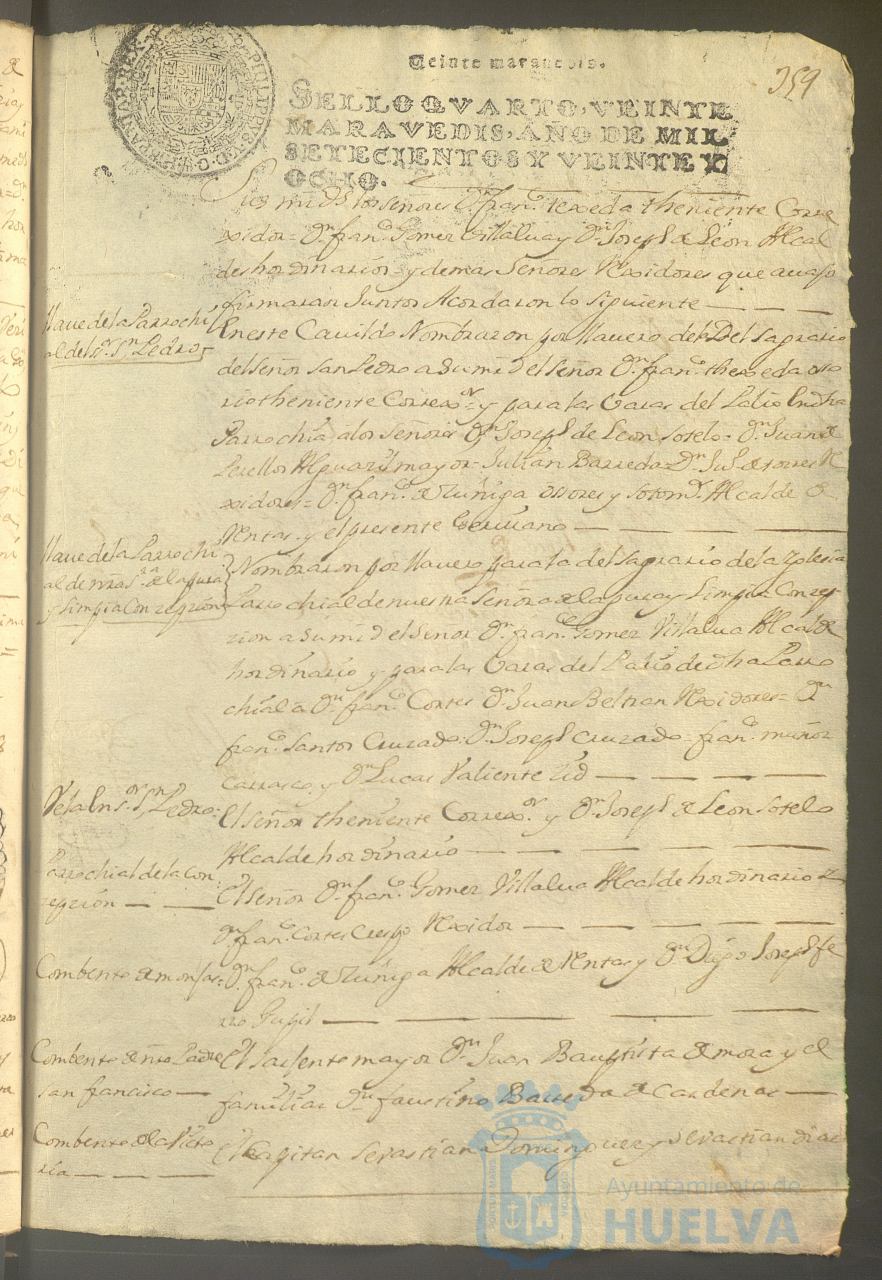 Veinte maravedis.
359
SELLO QVARTO, VEINTE
MARAVEDIS, AÑO DE MIL
SETECIENTOS Y VEINTE Y
OCHO.
PHILIPPVS V D G HISPANIAR REX
sus mrds los señores Dn. franco. texeda theniente Corre
xidor = Dn. franco. Gomez Villalua y Dn. Joseph de Leon Alcal
des hordinarios y demas Señores Rexidores que auajo
firmaran Juntos Acordaron lo siguiente
llaue de la Parrochi
al del sr. Sn. Pedro
En este Cauildo Nombraron por llauero del del Sagrario
del Señor San Pedro a su md el señor Dn. franco. thexeda oso
rio theniente Correxor. y para las Varas del Palio En dha
Parrochia, a los Señores Dn. Joseph de Leon Sotelo = Dn. Juan de
Alguazil mayor = Julian Barreda = Dn. de torres Re
xidores = Dn. franco. de Zuñiga ossores y sotomr. Alcalde de
Ventas, y el presente Escriuano
llaue de la Parrochi
al de nra sra. de la pura
y limpia Conzepzion
Nombraron por llauero para la del Sagrario de la Yglesia
Parrochial de nuestra Señora de la pura y Limpia Conzep
zion a su md el Señor Dn. franco. Gomez Villalua Alcalde
hordinario y para las Varas del Palio de dha Parro
chial a Dn. franco. Cortes Dn. Juan Beltran Rexidores = Dn
franco. Santos Cruzado = Dn. Joseph Cruzado = franco. muñoz
carrasco, y Dn. Lucas Valiente
Vela En sr. Sn. Pedro =
El Señor theniente Correxor. y Dn. Joseph de Leon Sotelo
Alcalde hordinario
Parrochial de la Con
zepzion
El Señor Dn. franco. Gomez Villalua Alcalde hordinario y
Dn. franco. Cortes Crespo Rexidor
Combento de monjas =
Dn. franco. de Zuñiga Alcalde de Ventas y Dn. Diego Joseph
Combento de nro Padre
san francisco
El sarjento mayor Dn. Juan Bauptista de mora y el
familiar Dn. faustino Barreda de Cardenas
Combento de la Victo
ria
El Capitan Sevastian Dominguez y sevastian diaz
Ayuntamiento de
HUELVA